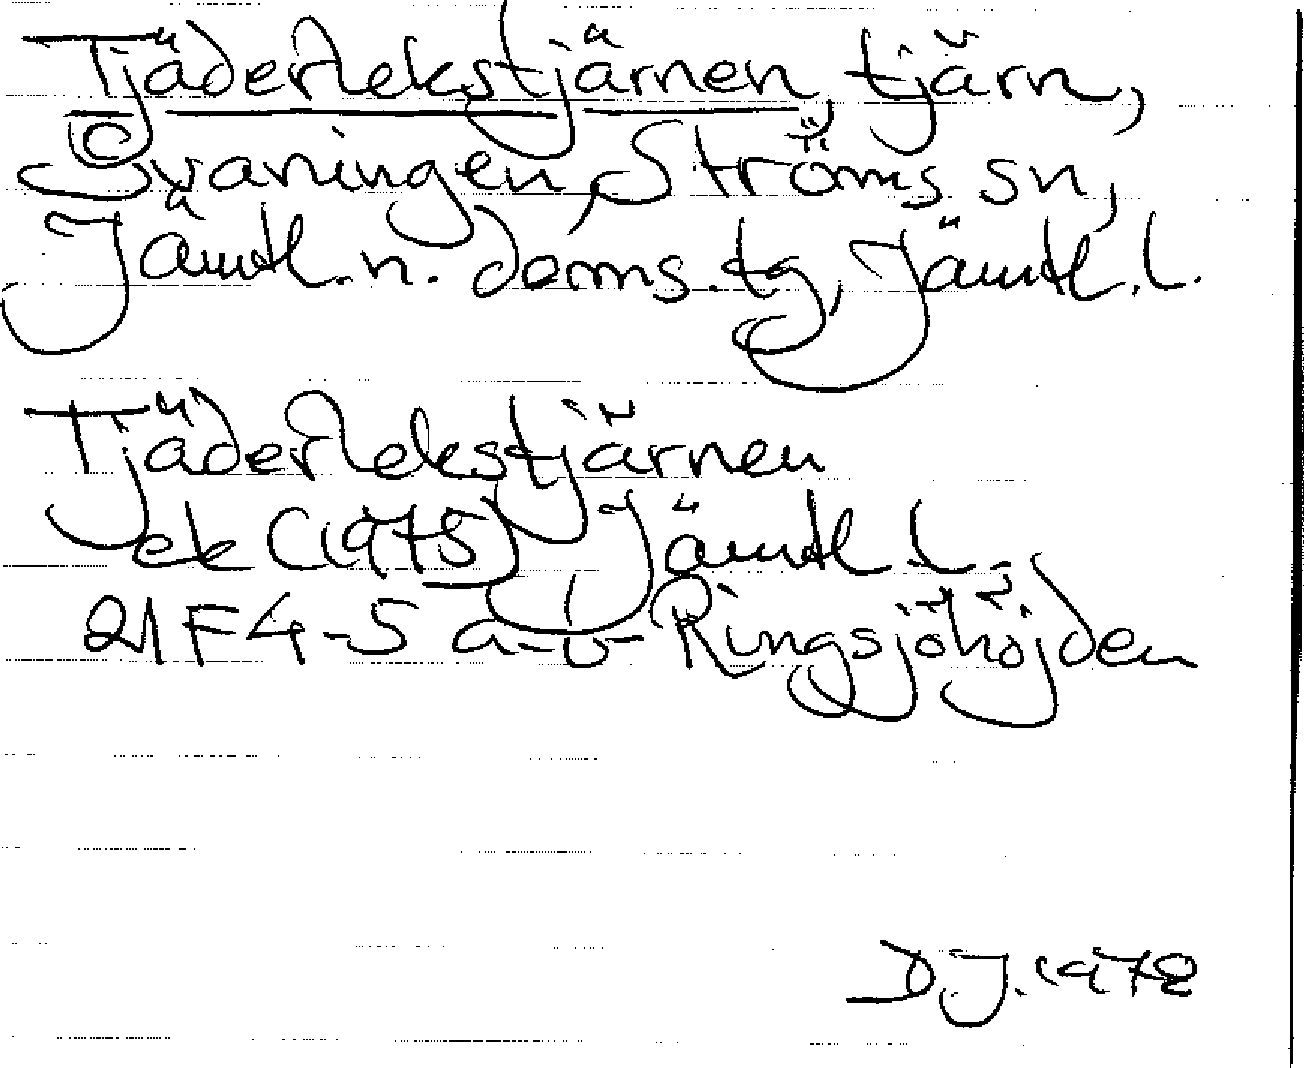 Tjäderlekstjärnen, tjärn,
Svaningen, Ströms sn,
Jämtl. n. doms. tg, Jämtl. l.
Tjäderlekstjärnen
ek (1975) Jämtl. l.
21F4-5 a-b Ringsjöhöjden
DJ. 1978